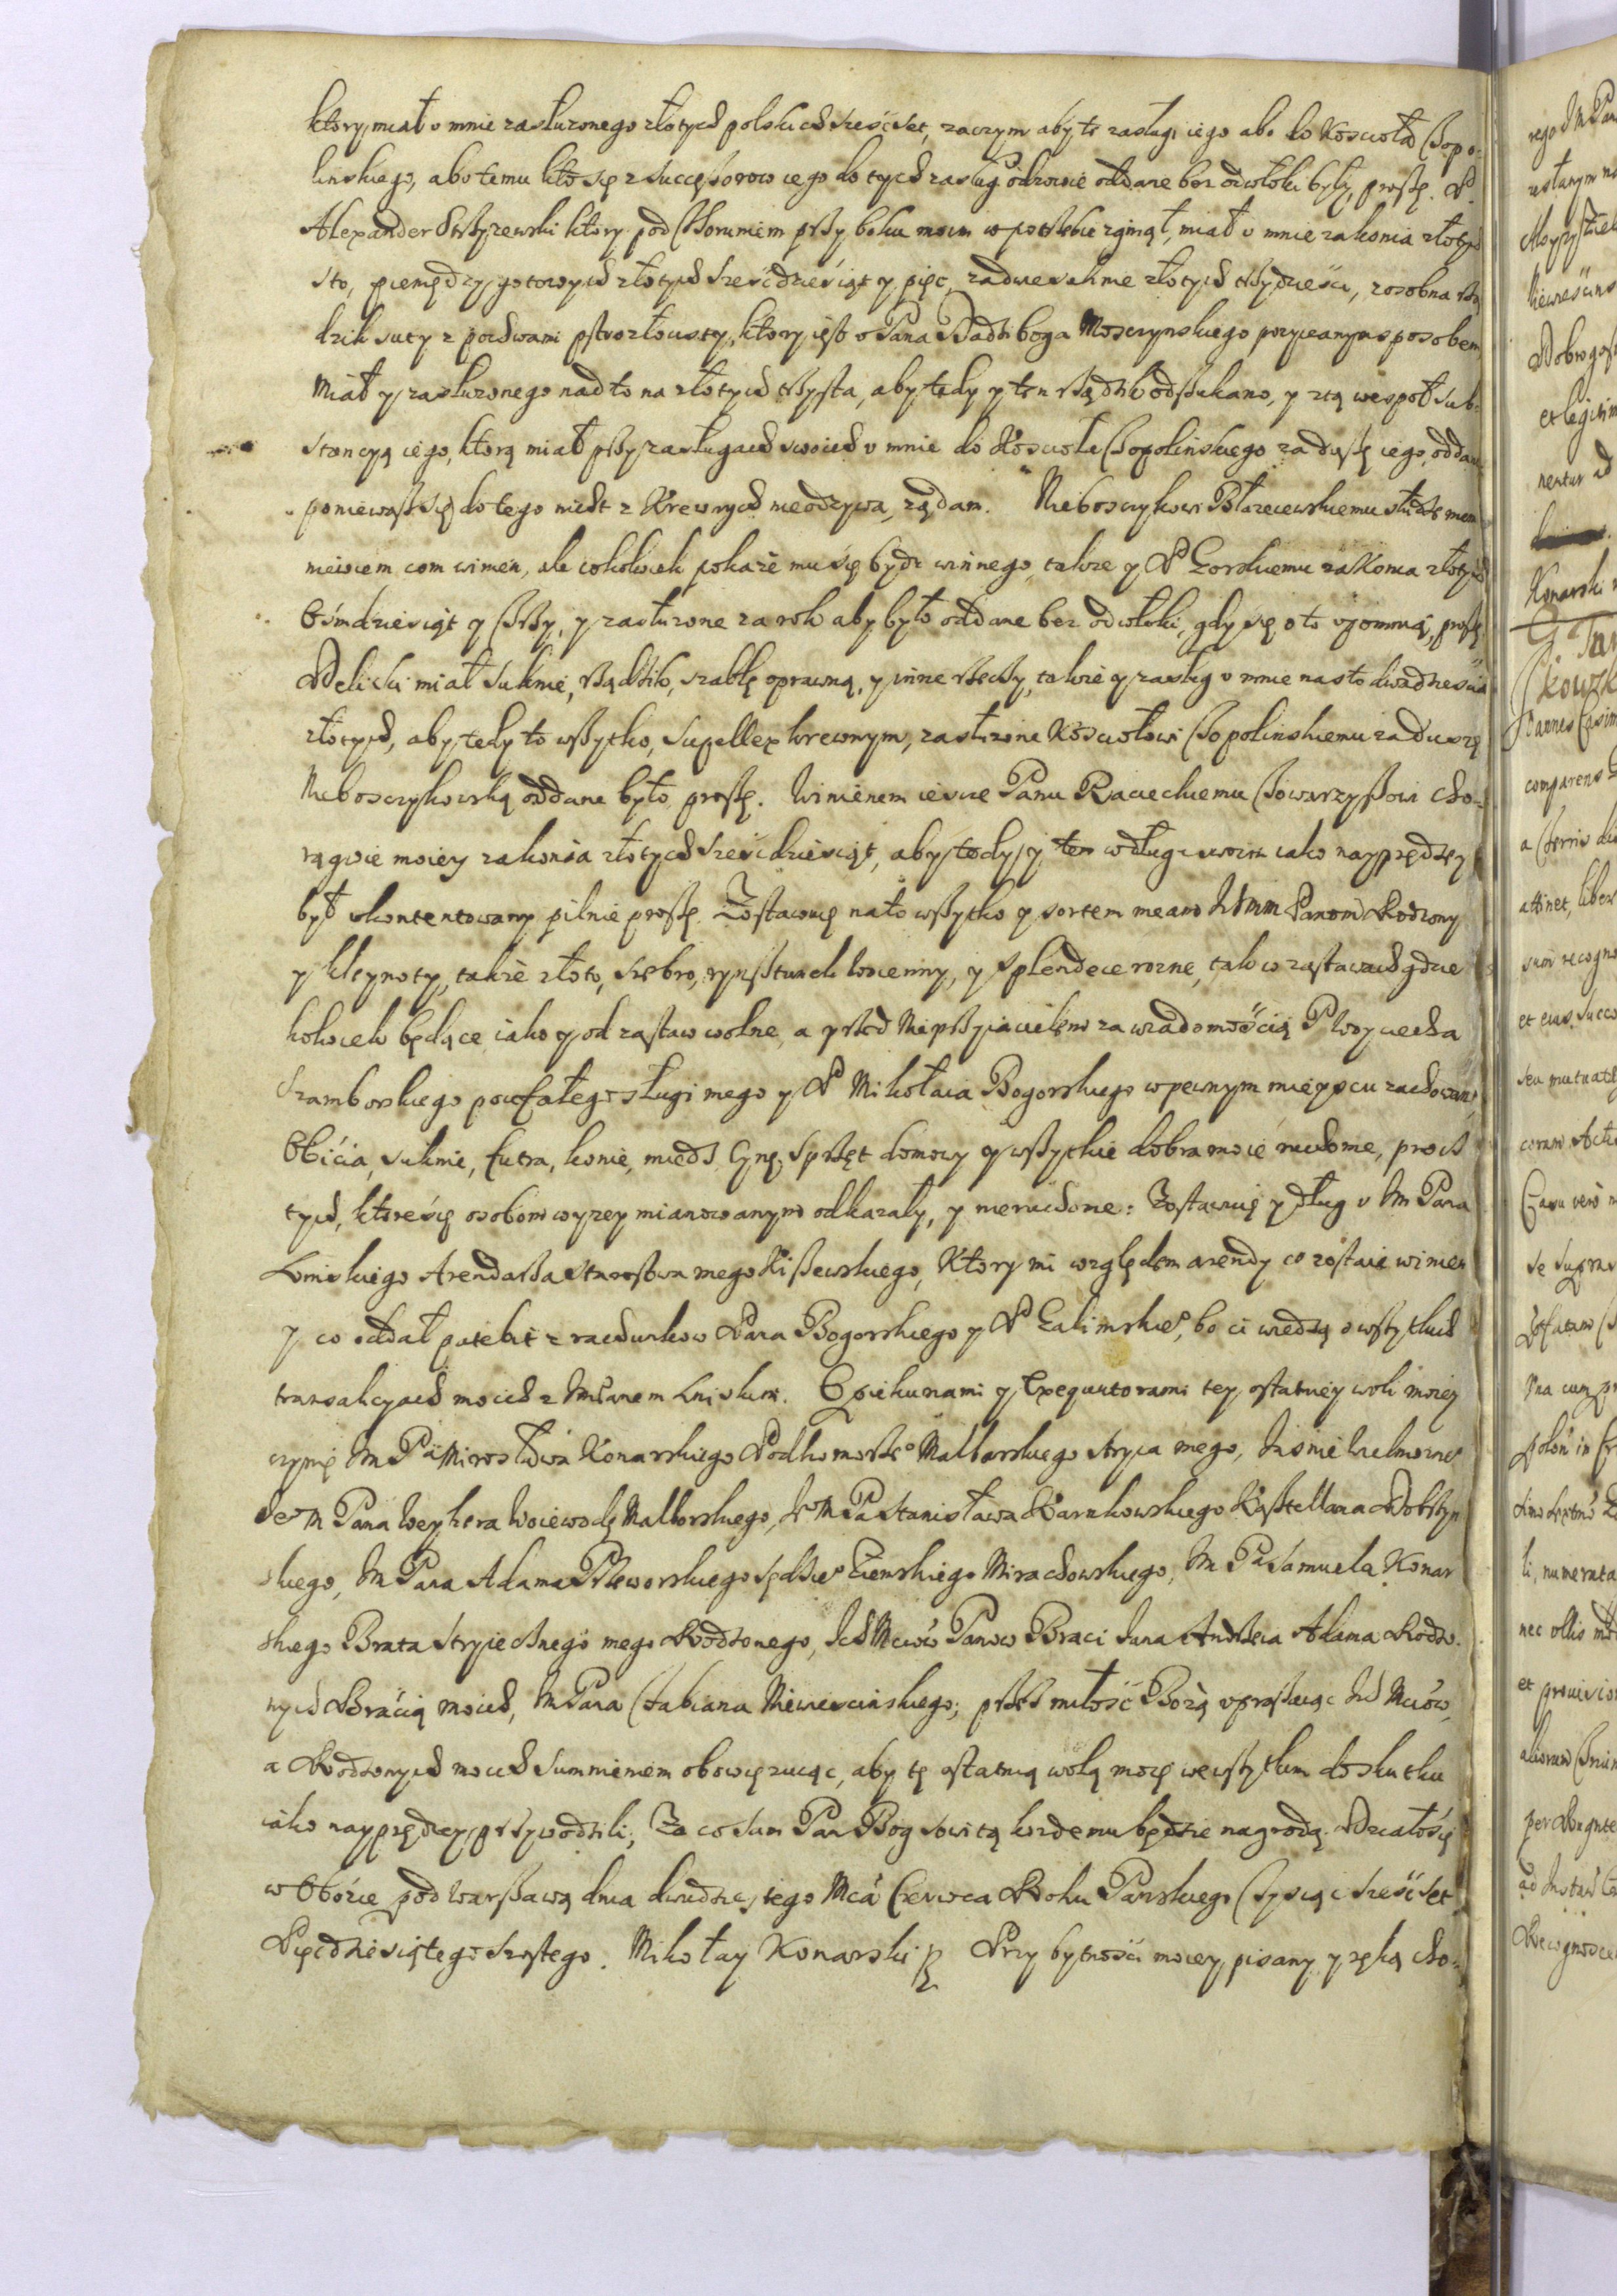 ktory miał v mnie zasłuzonego złotych polskich sześćset, zaczym aby te zasługi iego abo do Koscioła Topo-
linskiego, abo temu kto się z Successorow iego do tych zasług odzowie oddane bez odwłoki były, proszę. P.
Alexander Strszyzewski ktory pod Thoruniem przy boku moim w potrzebie zginął, miał v mnie za konia złotych
sto, pieniędzy gotowych złotych sześćdziesiąt y pięc, za dwie suknie złotych trzydzieści, zosobna rzą
dzik suty z pochwami pstrozłocisty, ktory iest v Pana Hadziboga Mosczynskiego pozyczanym sposobem
Miał y zasłuzonego nad to na złotych trzysta, aby tedy y ten rządzik odszukano, y z tą wespoł sub-
stancyą iego, ktorą miał przy zasługach swoich v mnie do Koscioła Topolinskiego za duszę iego, oddano
poniewasz się do tego nicht z Krewnych nieodzywa, ządam. Nieboszczykowi Błazeiewskiemu słudze mem
niewiem com winien, ale cokolwiek pokaże mu się bydz winnego, takze y P Gorskiemu za Konia złotych
Ośmdziesiąt y trzy, y zasłuzone za rok aby było oddane bez odwłoki, gdy się o to vpomną, proszę
Delicki miał suknie, rządzik, szablę oprawną, y inne rzeczy, takze y zasług v mnie na sto dwadziescia
złotych, aby tedy to wszytko, Supellex krewnym, zasłuzone Kosciołowi Topolinskiemu za duszę
Nieboszczykowską oddane było, proszę. Winienem iescze Panu Racieckiemu Towarzyszowi Cho-
rągwie moiey za konia złotych sześcdziesiąt, aby tedy y ten w długu swoim iako nayprędzey
był vkontentowany pilnie proszę. Zostawuię na to wszytko y sortem meam Ichmm Panom Rodzony
y kleynoty, także złoto, srebro, rynsztunek woienny, y Splendece rozne, tak w zastawach gdzie
kolwiek będące, iako y od zastaw wolne, a przed Nieprzyiacielem za wiadomością P Woyciecha
Szamborskiego poufałego sługi mego y P Mikołaia Bogorskiego w pewnym mieyscu zachowane,
Obićia, suknie, futra, konie, miedź, Cynę, Sprzęt domowy y wszytkie dobra moie ruchome, procz
tych, które się osobom wyzey mianowanym odkazały, y nieruchome: Zostawuię y dług v Im Pana
Lniskiego Arendarza Starostwa mego Kiszewskiego, Ktory mi względem arendy co zostaie winien
y co oddał patebit z rachunkow Pana Bogorskiego y P Zalinskieo, bo ci wiedzą o wszytkich
transakcyach moich z Im Panem Lniskim. Opiekunami y Exequutorami tey ostatniey woli moiey
czynię Im Pa Mirosława Konarskiego Podkomorzeo Malborskiego stryia mego, Iasnie Wielmoznego
Ieo M Pana Weyhera Woiewodę Malborskiego, Ieo M Pa Stanisława Karnkowskiego Kasztellana Dobrzyn
skiego, Im Pana Adama Przeworskiego Sędzieo Ziemskiego Mirachowskiego, Im Pa Samuela Konar
skiego Brata Stryiecznego mego Rodzonego, Ich Mciów Panow Braci Iana Andrzeia Adama Rodzo-
nych Braćią moich, Im Pana Fabiana Niewiescinskiego; przez miłość Bożą vpraszaiąc Ich Mciów,
a Rodzonych moich Sumnieniem obowięzuiąc, aby tę ostatnią wolą moię we wszytkim do skutku
iako nayprędzey przywodzili, Za co sam Pan Bog sowitą kozdemu będzie nagrodą. Działo się
w Obózie pod Warszawą dnia dwudziestego Mcá Czerwca Roku Panskiego Tysiąc sześćset
Pięcdziesiątego Szostego. Mikołay Konarski Przy bytności moiey pisany y ręką cho-